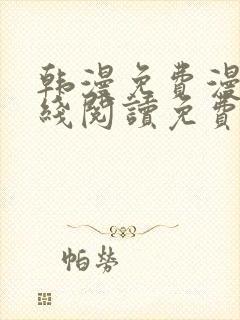 韩漫免費漫
綫閱讀免費
帕勞